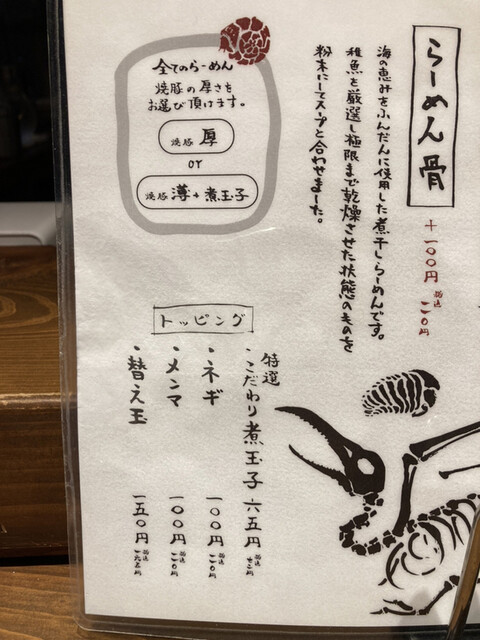 らーめん骨
+一〇〇円 税込一一〇円
海の恵みをふんだんに使用した煮干しらーめんです。
稚魚を厳選し極限まで乾燥させた状態のものを
粉末にしてスープと合わせました。
全てのらーめん
焼豚の厚さを
お選び頂けます。
焼豚 厚
or
焼豚 薄+煮玉子
トッピング
特選
・こだわり煮玉子 六五円 税込七二円
・ネギ 一〇〇円 税込一一〇円
・メンマ 一〇〇円 税込一一〇円
・替え玉 一五〇円 税込一六五円